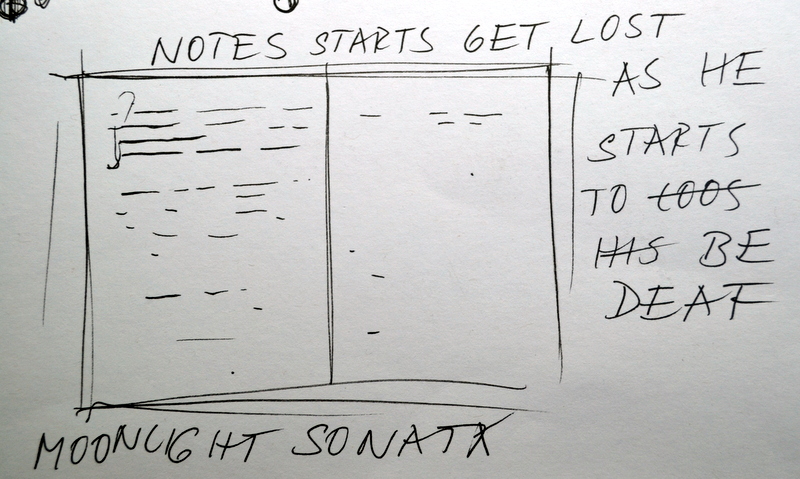 NOTES STARTS GET LOST
AS HE
STARTS
TO LOOS
HIS BE
DEAF
MOONLIGHT SONATA